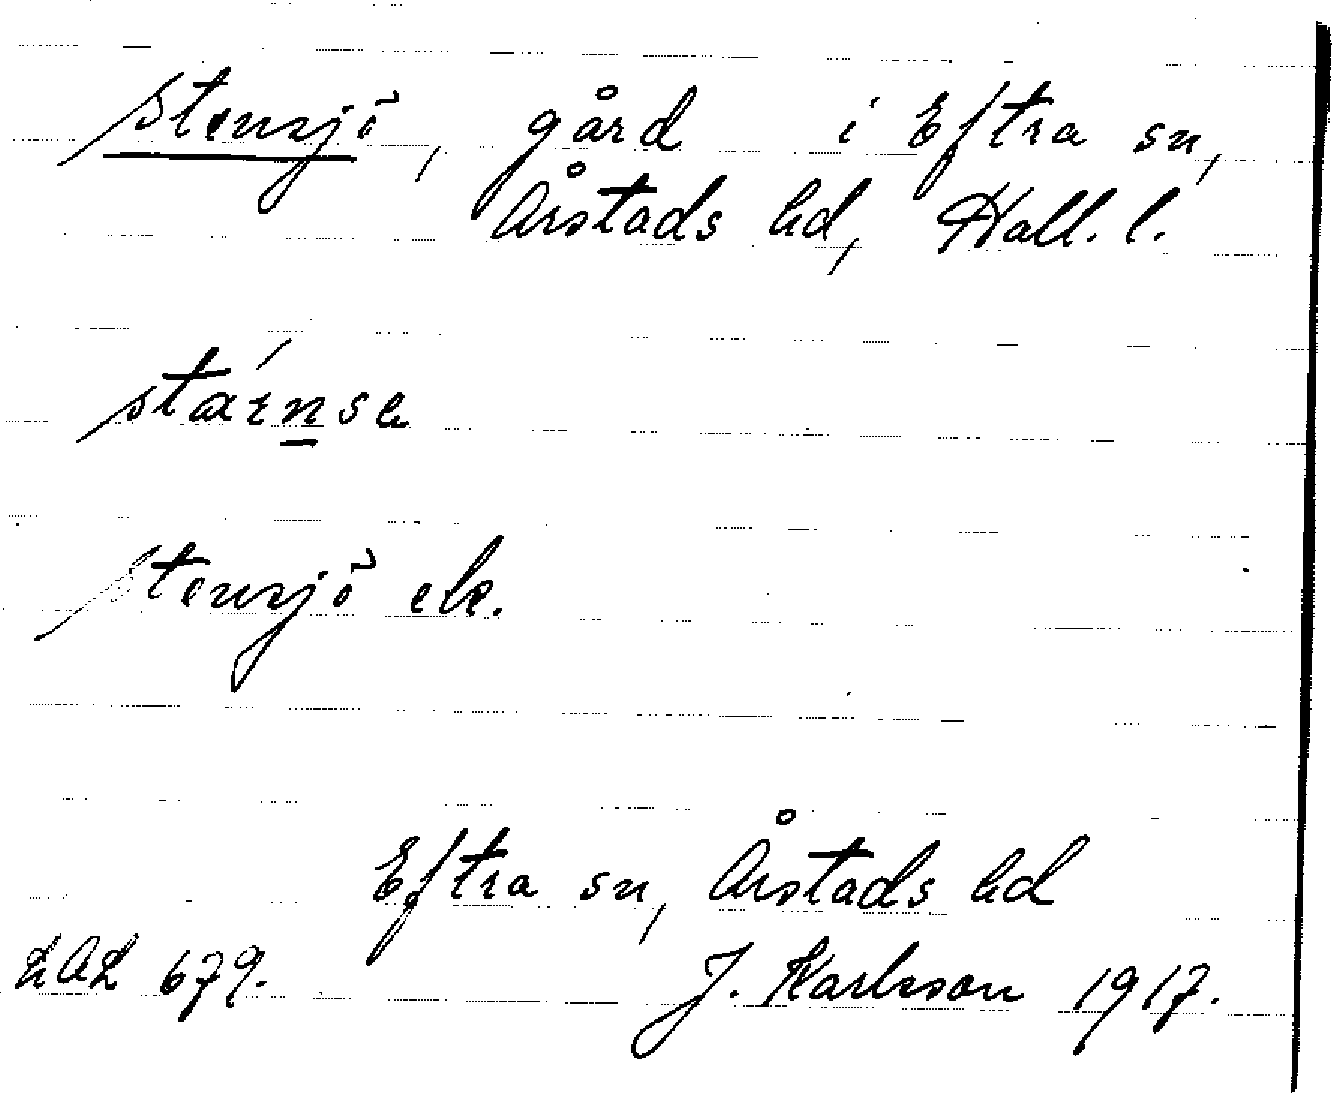 Stensjö, gård i Eftra sn,
Årstads hd, Hall. l.
stæ´n̲se
Stensjö ek.
Eftra sn, Årstads hd
LAL 679. J. Karlsson 1917.